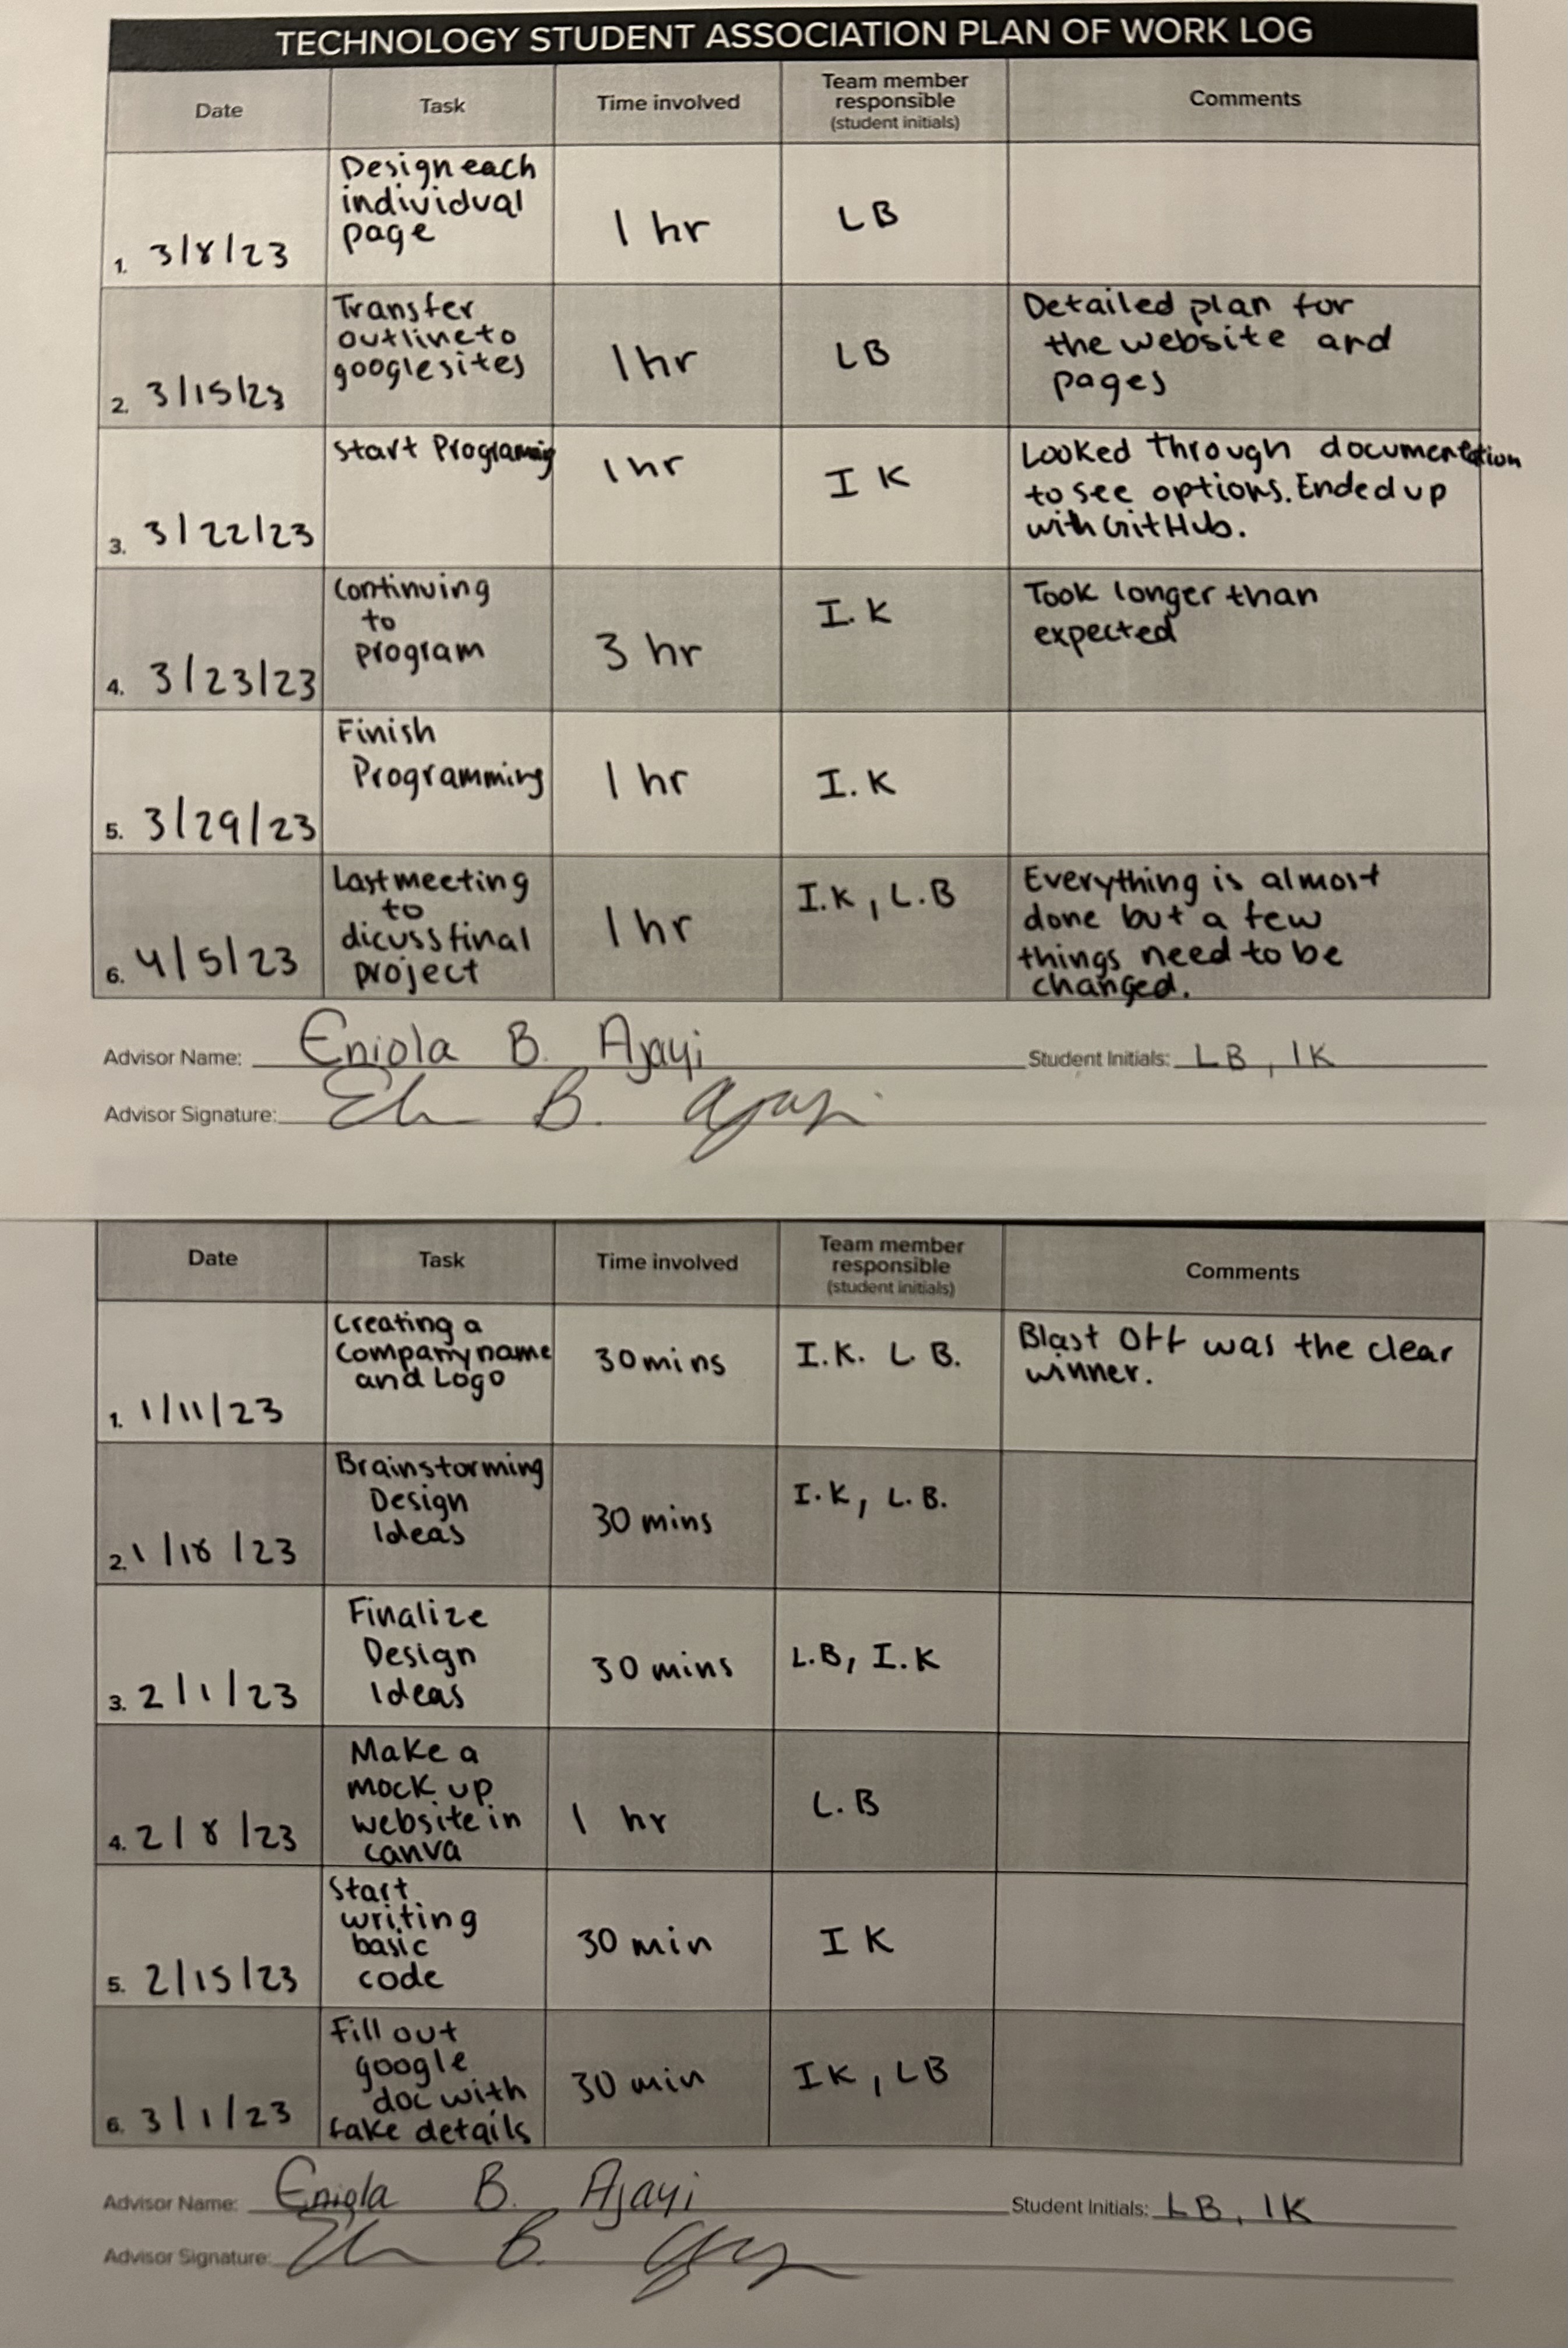 TECHNOLOGY STUDENT ASSOCIATION PLAN OF WORK LOG
Date
Task
Time involved
Team member
responsible
(student initials)
Comments
1. 3/8/23
Design each
individual
page
1 hr
LB
2. 3/15/23
Transfer
outline to
google sites
1 hr
LB
Detailed plan for
the website and
pages
3. 3/22/23
Start Programing
1 hr
I K
Looked through documentation
to see options. Ended up
with GitHub.
4. 3/23/23
Continuing
to
program
3 hr
I.K
Took longer than
expected
5. 3/29/23
Finish
Programming
1 hr
I.K
6. 4/5/23
Last meeting
to
dicuss final
project
1 hr
I.K, L.B
Everything is almost
done but a few
things need to be
changed.
Advisor Name: Eniola B. Ajayi
Student Initials: LB, IK
Advisor Signature: B.
Date
Task
Time involved
Team member
responsible
(student initials)
Comments
1. 1/11/23
Creating a
Company name
and Logo
30 mins
I.K. L.B.
Blast Off was the clear
winner.
2. 1/18/23
Brainstorming
Design
Ideas
30 mins
I.K, L.B.
3. 2/1/23
Finalize
Design
Ideas
30 mins
L.B, I.K
4. 2/8/23
Make a
mock up
website in
canva
1 hr
L.B
5. 2/15/23
Start
writing
basic
code
30 min
I K
6. 3/1/23
Fill out
google
doc with
fake details
30 min
IK, LB
Advisor Name: Eniola B. Ajayi
Student Initials: LB, IK
Advisor Signature: B.